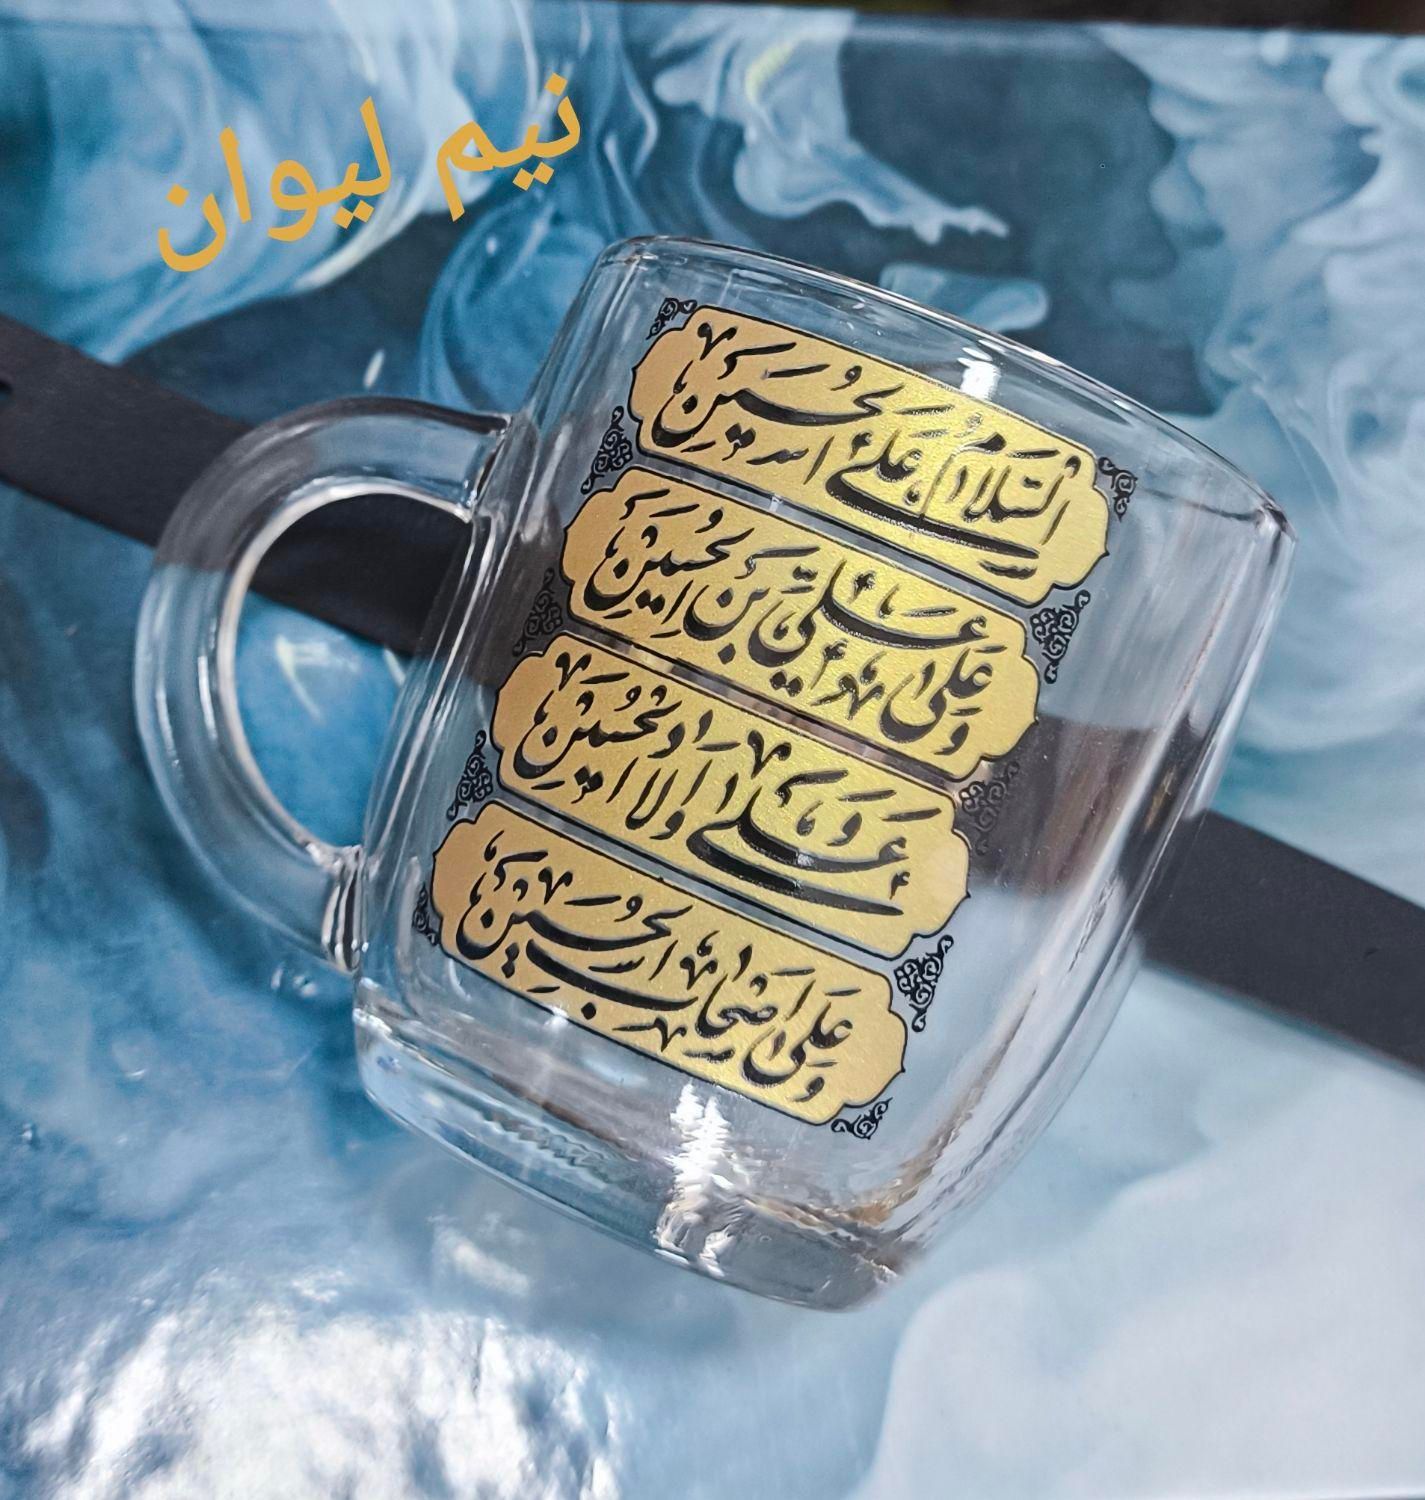 نیم لیوان
السَّلامُ عَلَی الحُسَینِ
وَ عَلی عَلِیِّ بنِ الحُسَینِ
وَ عَلی اَولادِ الحُسَینِ
وَ عَلی اَصحابِ الحُسَینِ